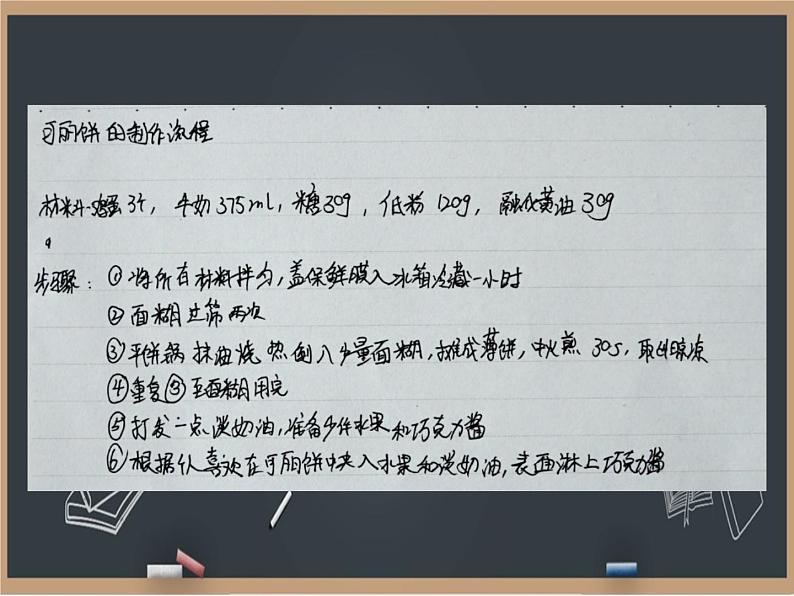 可丽饼的制作流程
材料：鸡蛋3个，牛奶375ml，糖30g，低粉120g，融化黄油30g
步骤：①将所有材料拌匀，盖保鲜膜入冰箱冷藏一小时
②面糊过筛两次
③平饼锅抹油烧热倒入少量面糊，摊成薄饼，中火煎30s，取出晾凉
④重复③至面糊用完
⑤打发一点淡奶油，准备少许水果和巧克力酱
⑥根据个人喜欢在可丽饼中夹入水果和淡奶油，表面淋上巧克力酱